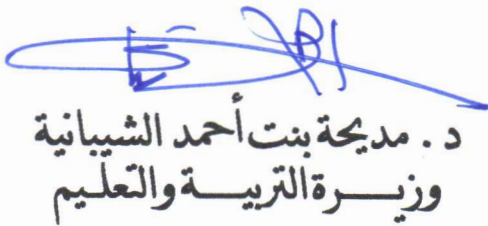 د. مديحة بنت أحمد الشيبانية
وزيرة التربية والتعليم